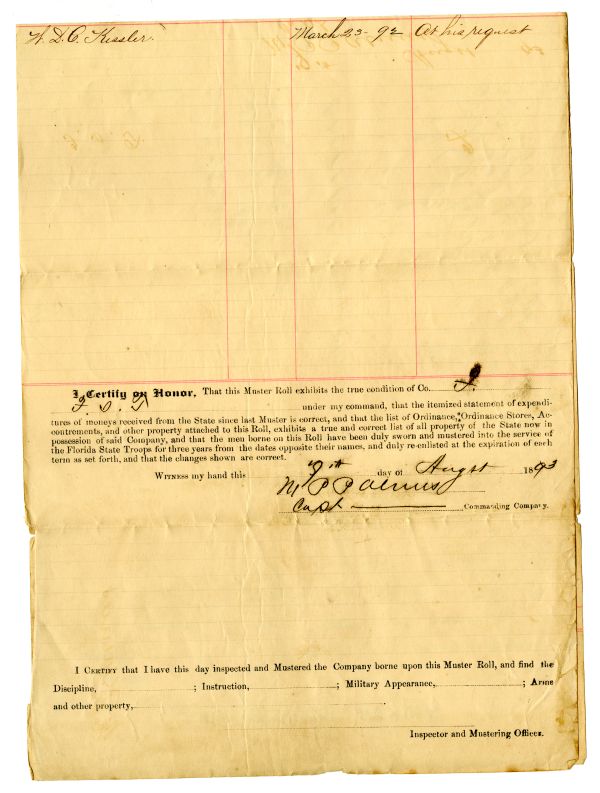 W. D. C. Kessler. March 23 - 92 At his request
I Certify on Honor, That this Muster Roll exhibits the true condition of Co.
F. S. T under my command, that the itemized statement of expendi-
tures of moneys received from the State since last Muster is correct, and that the list of Ordinance, Ordinance Stores, Ac-
coutrements, and other property attached to this Roll, exhibits a true and correct list of all property of the State now in
possession of said Company, and that the men borne on this Roll have been duly sworn and mustered into the service of
the Florida State Troops for three years from the dates opposite their names, and duly re-enlisted at the expiration of each
term as set forth, and that the changes shown are correct.
Witness my hand this 7th day of Augst 1893
Capt Commanding Company.
I Certify that I have this day inspected and Mustered the Company borne upon this Muster Roll, and find the
Discipline, ; Instruction, ; Military Appearance, ; Arms
and other property, .
Inspector and Mustering Officer.